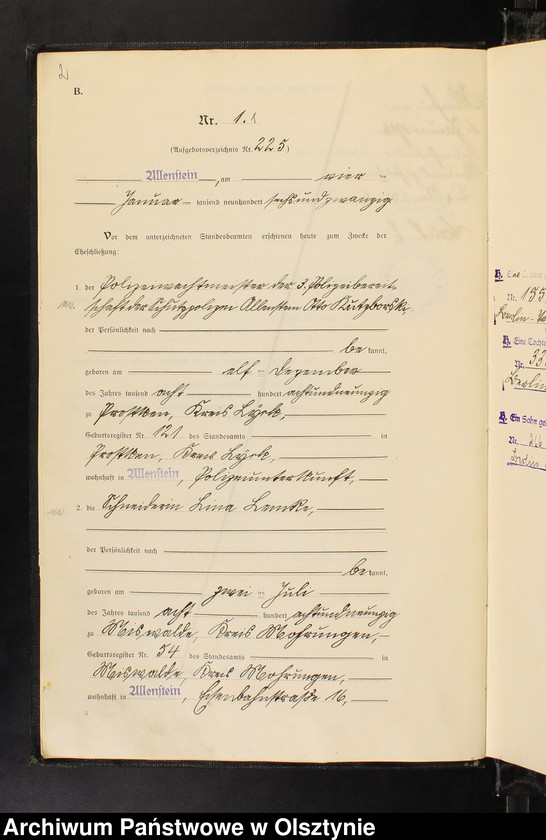 2
B.
Nr. 1.
(Aufgebotsverzeichnis Nr. 225)
Allenstein, am vier ten
Januar tausend neunhundert sechsundzwanzig
Vor dem unterzeichneten Standesbeamten erschienen heute zum Zwecke der
Eheschließung:
1. der Polizeiwachtmeister der 3. Polizeibereit-
schaft der Schutzpolizei Allenstein Otto
der Persönlichkeit nach
be kannt,
geboren am elf ten Dezember
des Jahres tausend acht hundert achtundneunzig
zu Prostken, Kreis Lyck,
Geburtsregister Nr. 121 des Standesamts in
Prostken, Kreis Lyck,
wohnhaft in Allenstein, Polizeiunterkunft,
2. die Schneiderin Lina Lemke,
der Persönlichkeit nach
be kannt,
geboren am zwei ten Juli
des Jahres tausend acht hundert achtundneunzig
zu Miswalde, Kreis Mohrungen,
Geburtsregister Nr. 54 des Standesamts in
Miswalde, Kreis Mohrungen,
wohnhaft in Allenstein, Eisenbahnstraße 16,
H.
Nr. 155
Berlin-
H. Eine Tochte
Nr. 33
Berlin
H. Ein Sohn ge
Nr. 216
Archiwum Państwowe w Olsztynie